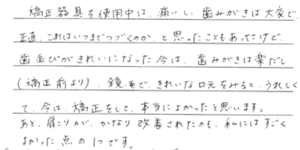 矯正器具を使用中は、痛いし、歯みがきは大変で
正直、これはいつまでつづくのか、と思ったこともあったけど、
歯並びがきれいになった今は、歯みがきは楽だし
(矯正前より)、鏡を見て、きれいな口元をみると、うれしく
て、今は、矯正をして、本当によかったと思います。
あと、肩こりが、かなり改善されたのも、私にはすごく
よかった点の1つです。